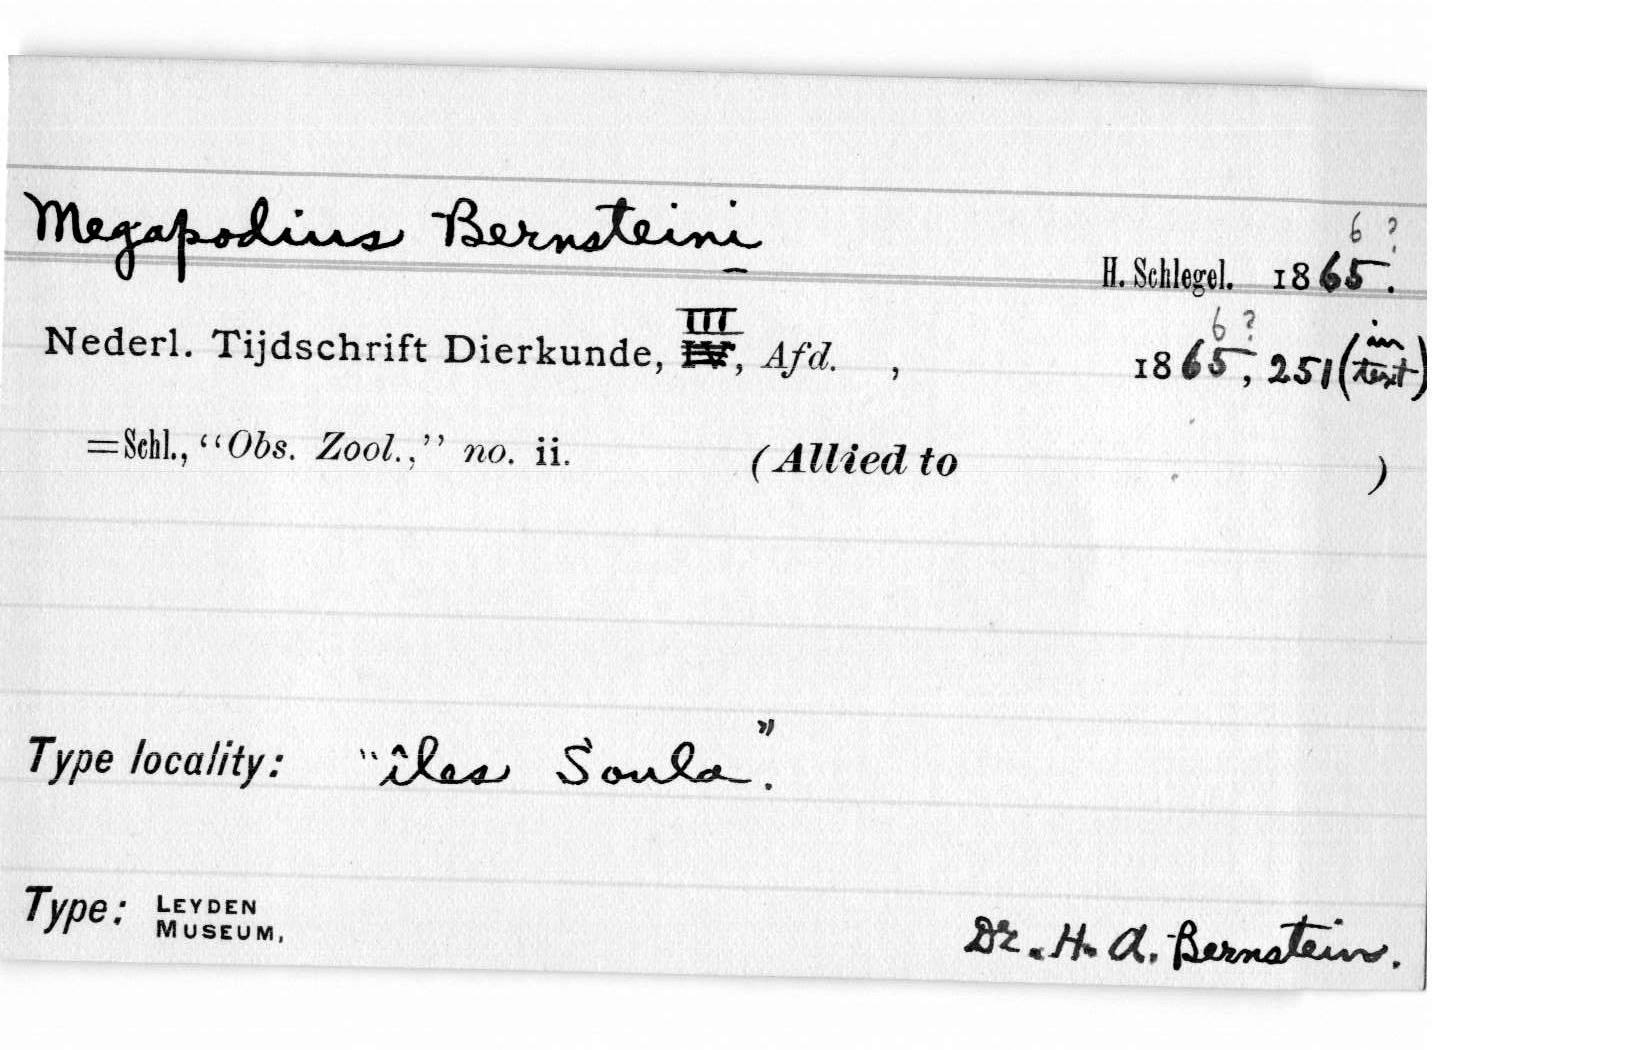 Megapodius Bernsteini
6 ?
H. Schlegel. 1865.
III 6 ?
Nederl. Tijdschrift Dierkunde, IV, Afd. , 1865, 251 (in text)
=Schl., “Obs. Zool.,” no. ii. (Allied to )
Type locality: “îles Soula”.
Type: LEYDEN MUSEUM, Dr. H. A. Bernstein.